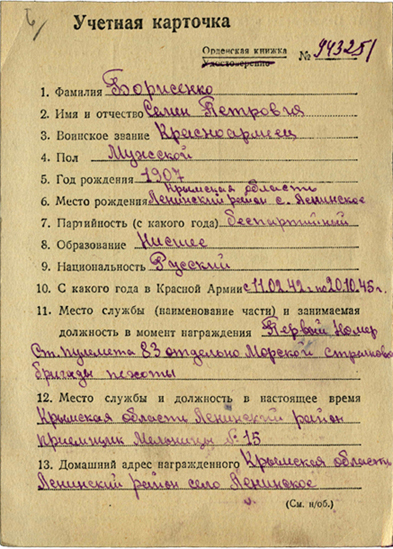 Учетная карточка
Орденская книжка
Удостоверение № 943251
1. Фамилия Борисенко
2. Имя и отчество Семен Петровия
3. Воинское звание Красноармеец
4. Пол Мужской
5. Год рождения 1907
Крымская области
6. Место рождения Ленинский район с. Ленинское
7. Партийность (с какого года) беспартийной
8. Образование Нисшее
9. Национальность Русский
10. С какого года в Красной Армии с 11.02.42 г по 20.10.45 г.
11. Место службы (наименование части) и занимаемая
должность в момент награждения Первый Номер
Ст. пулемета 83 отдельно Морской стрелково
бригады пехоты
12. Место службы и должность в настоящее время
Крымская области Ленинский район
приемщик Мельницы № 15
13. Домашний адрес награжденного Крымская области
Ленинский район село Ленинское
(См. н/об.)